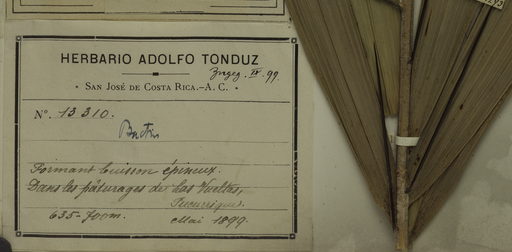 HERBARIO ADOLFO TONDUZ
IX. 99.
• SAN JOSÉ DE COSTA RICA.–A. C. •
Nº. 13310.
Bactris
Formant buisson épineux.
Dans les pâturages de Las Vueltas,
Tucurrique.
635-700m. Mai 1899